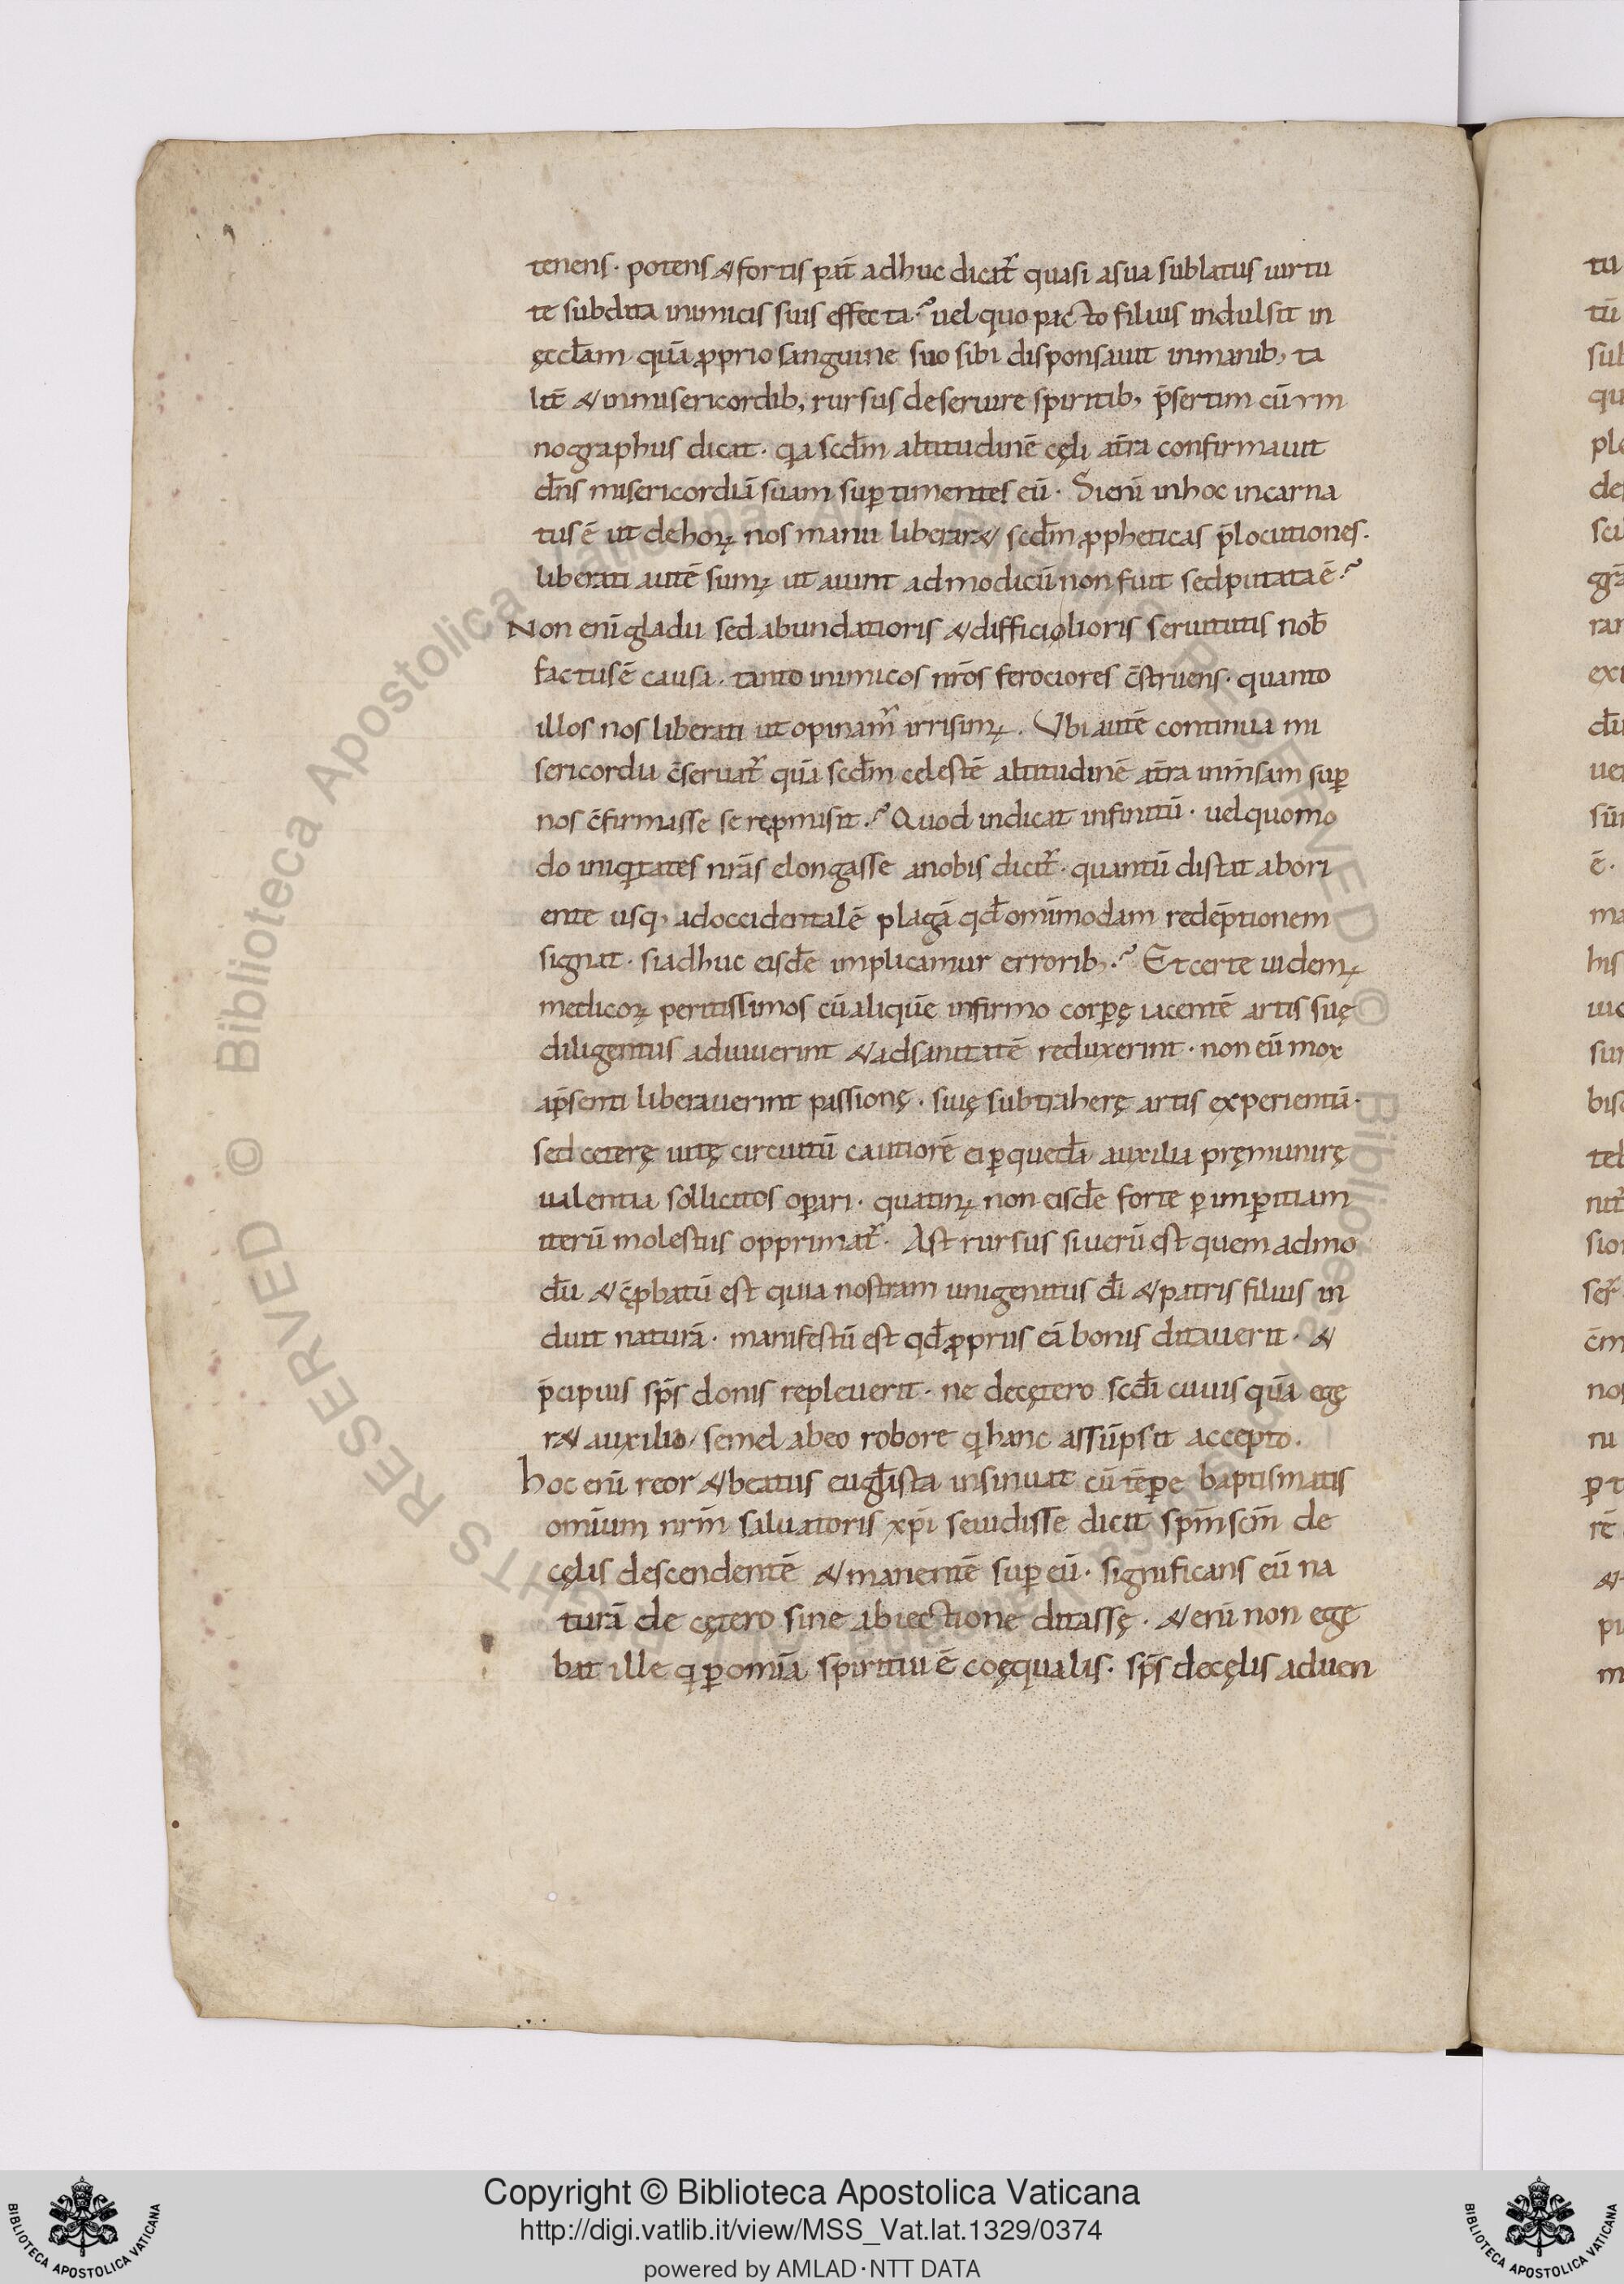 tenens· potens & fortis pat̄ adhuc dicat᷑ quasi a sua sublatus uirtu
te subdita inimicis suis effecta? uel quo pacto filius indulsit in
ęccłam quā ꝓprio sanguine suo sibi disponsauit in manib; ta
lit̄ & inmisericordib; rursus deseruire spiritib; p̄sertim cū ym
nographus dicat· qia scdm̄ altitudinē cęli at̄ra confirmauit
dn̄s misericordiā suam suꝑ timentes eū· Si eni in hoc incarna
tus ē ut de hoꝝ nos manu liberar& scdm̄ ꝓpheticas p̄locutiones·
liberati autē sumꝰ ut aiunt ad modicū non fuit sed putata ē?
Non eni gladii sed abundatioris & difficiolioris seruitutis nob̄
factus ē causa· tanto inimicos nr̄os ferociores c̄struens· quanto
illos nos liberati ut opinam᷑ irrisimꝰ. Vbi autē continua mi
sericordia c̄seruat᷑ quā scdm̄ celestē altitudinē at̄ra inm̄sam suꝑ
nos c̄firmasse se reꝓmisit? Quod indicat infinitū· uel quomo
do iniqitates nr̄as elongasse a nobis dicit᷑· quantū distat ab ori
ente usq; ad occidentalē plagā qd̄ omīmodam redēptionem
signat· si adhuc eisdē implicamur errorib;? Et certe uidemꝰ
medicoꝝ peritissimos cū aliquē infirmo corꝑę iacentē artis suę
diligentiis adiuuerint & ad sanitatē reduxerint· non eū mox
a p̄senti liberauerint passionę· suię subtraherę artis experientiā·
sed ceterę uitę circuitū cautiorē ei ꝑ quedā auxilia pręmunirę
ualentia sollicitos oꝑiri· quatinꝰ non eisdē forte ꝑ imꝑitiam
iterū molestiis opprimat᷑· Ast rursus si uerū est quem admo
dū & cꝓbatū est quia nostram unigenitus dī & patris filius in
duit naturā· manifestū est qd̄ ꝓpriis eā bonis ditauerit· &
p̄cipuis sp̄s donis repleuerit· ne decętero scdī cuiuis quā egę
r& auxilio, semel ab eo robore qi hanc assūpsit accepto·
hoc eni reor & beatus eug̅lista insinuat cū tēꝑe baptismatis
omīum nrm̄ saluatoris xp̄i se uidisse dicit sp̄m sc̄m de
cęlis descendentē & manentē suꝑ eū· significans eū na
turā de cętero sine abiectione ditassę· & eni non ege
bat ille qi ꝑ omīa spiritui ē coęqualis· sp̄s de cęlis aduen
Copyright © Biblioteca Apostolica Vaticana
http://digi.vatlib.it/view/MSS_Vat.lat.1329/0374
powered by AMLAD·NTT DATA